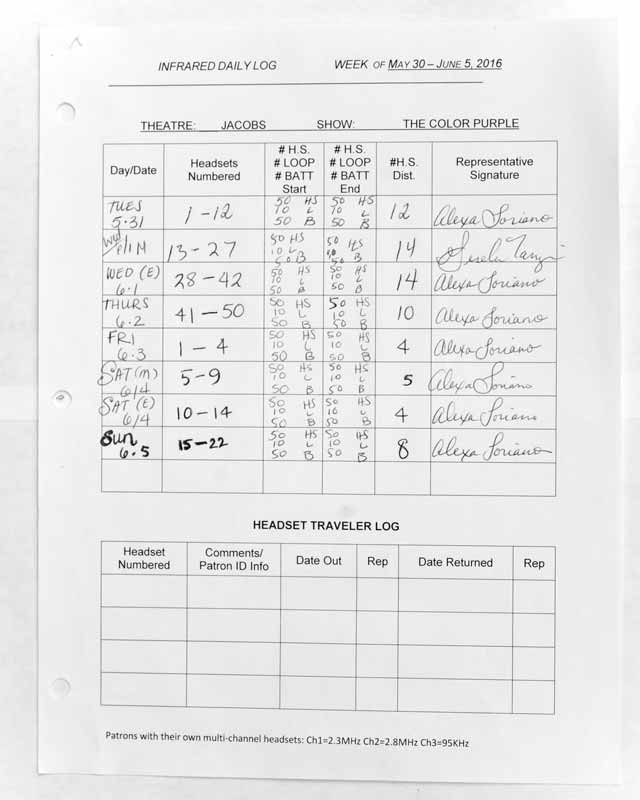 INFRARED DAILY LOG WEEK OF MAY 30 – JUNE 5, 2016
THEATRE: JACOBS SHOW: THE COLOR PURPLE
Day/Date Headsets Numbered # H.S. # LOOP # BATT Start # H.S. # LOOP # BATT End #H.S. Dist. Representative Signature
TUES 5.31 1-12 50 HS 10 L 50 B 50 HS 10 L 50 B 12 Alexa Soriano
Wed 6/1 M 13-27 50 HS 10 L 50 B 50 HS 10 L 50 B 14
WED (E) 6.1 28-42 50 HS 10 L 50 B 50 HS 10 L 50 B 14 Alexa Soriano
THURS 6.2 41-50 50 HS 10 L 50 B 50 HS 10 L 50 B 10 Alexa Soriano
FRI 6.3 1-4 50 HS 10 L 50 B 50 HS 10 L 50 B 4 Alexa Soriano
SAT (M) 6/4 5-9 50 HS 10 L 50 B 50 HS 10 L 50 B 5 Alexa Soriano
SAT (E) 6/4 10-14 50 HS 10 L 50 B 50 HS 10 L 50 B 4 Alexa Soriano
Sun 6.5 15-22 50 HS 10 L 50 B 50 HS 10 L 50 B 8 Alexa Soriano
HEADSET TRAVELER LOG
Headset Numbered Comments/ Patron ID Info Date Out Rep Date Returned Rep
Patrons with their own multi-channel headsets: Ch1=2.3MHz Ch2=2.8MHz Ch3=95KHz